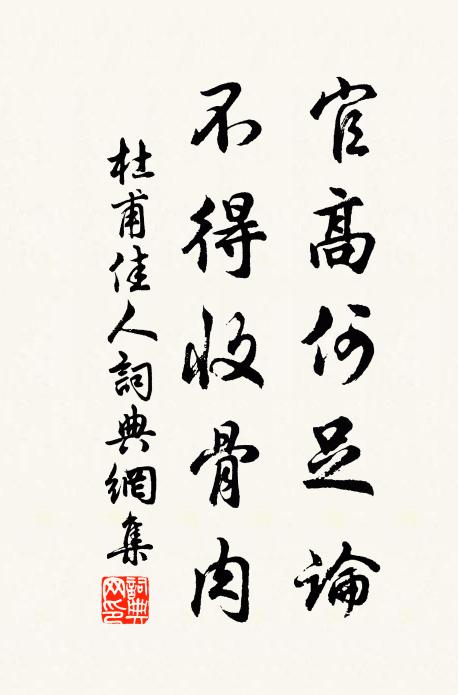 官高何足論
不得收骨肉
杜甫佳人詞典網集
詞典网印